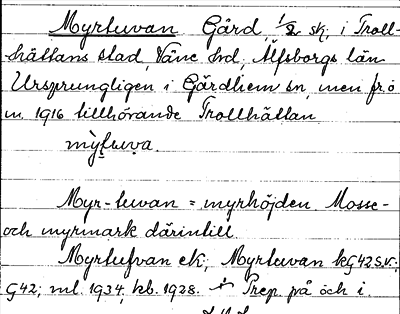 Myrtuvan Gård, 1/2 sk, i Troll-
hättans stad, Väne hd, Älfsborgs län
Ursprungligen i Gärdhem sn, men fr.o
m. 1916 tillhörande Trollhättan
Myr-tuvan = myrhöjden. Mosse-
och myrmark därintill
Myrtufvan ek; Myrtuvan kG42S.v.;
G42; ml. 1934; kb. 1928. Prep. på och i.